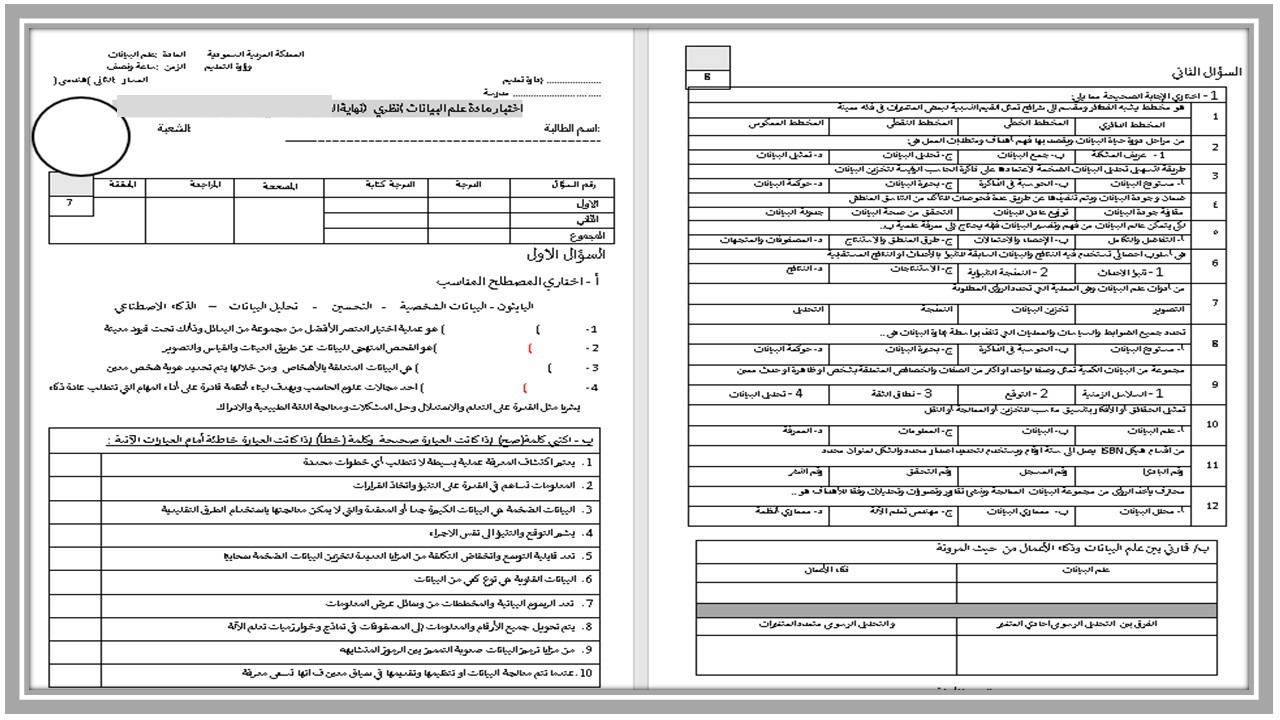 المملكة العربية السعودية المادة :علم البيانات
وزارة التعليم الزمن: ساعة ونصف
إدارة تعليم .....................
مدرسة ........................
اختبار مادة علم البيانات )نظري (نهاية ال
اسم الطالبة: الشعبة
رقم السؤال الدرجة الدرجة كتابة المصححة المراجعة المدققة
7
الأول
الثاني
المجموع
السؤال الأول
أ - اختاري المصطلح المناسب
البايثون - البيانات الشخصية - التحسين - تحليل البيانات – الذكاء الاصطناعي
1- ( ) هو عملية اختيار العنصر الأفضل من مجموعة من البدائل وذلك تحت قيود معينة
2 - ( )هو الفحص المنهجي للبيانات عن طريق العينات والقياس والتصوير
3 - ( ) هي البيانات المتعلقة بالأشخاص ومن خلالها يتم تحديد هوية شخص معين
4- ( ) احد مجالات علوم الحاسب ويهدف لبناء أنظمة قادرة على أداء المهام التي تتطلب عادة ذكاء
بشريا مثل القدرة على التعلم والاستدلال وحل المشكلات ومعالجة اللغة الطبيعية والادراك
ب - اكتبي كلمة(صح) إذا كانت العبارة صحيحة وكلمة (خطأ) إذا كانت العبارة خاطئة أمام العبارات الآتية :
1. يعتبر اكتشاف المعرفة عملية بسيطة لا تتطلب أي خطوات محددة
2. المعلومات تساهم في القدرة على التنبؤ واتخاذ القرارات
3. البيانات الضخمة هي البيانات الكبيرة جدا أو المعقدة والتي لا يمكن معالجتها باستخدام الطرق التقليدية
4. يشير التوقع والتنبؤ الى نفس الاجراء
5. تعد قابلية التوسع وانخفاض التكلفة من المزايا العديدة لتخزين البيانات الضخمة سحابيا
6. البيانات الفئوية هي نوع كمي من البيانات
7. تعد الرسوم البيانية والمخططات من وسائل عرض المعلومات
8. يتم تحويل جميع الأرقام والمعلومات إلى المصفوفات في نماذج وخوارزميات تعلم الآلة
9. من مزايا ترميز البيانات صعوبة التمييز بين الرموز المتشابهه
10. عندما تتم معالجة البيانات او تنظيمها وتقديمها في سياق معين فانها تسمى معرفة
السؤال الثاني
8
1 - اختاري الإجابة الصحيحة مما يلي:
1 هو مخطط يشبه الفطائر ومقسم إلى شرائح تمثل القيم النسبية لبعض المتغيرات في فئة معينة
المخطط الدائري المخطط الخطي المخطط النقطي المخطط المعكوس
2 من مراحل دورة حياة البيانات ويقصد بها فهم أهداف ومتطلبات العمل هي:
1 - تعريف المشكلة ب- جمع البيانات ج- تحليل البيانات د- تمثيل البيانات
3 طريقة لتسهيل تحليل البيانات الضخمة لاعتمادها على ذاكرة الحاسب الرئيسة لتخزين البيانات
أ- مستودع البيانات ب- الحوسبة في الذاكرة ج- بحيرة البيانات د- حوكمة البيانات
٤ ضمان وجودة البيانات ويتم تنفيذها عن طريق عدة فحوصات للتأكد من التناسق المنطقي
مقارنة جودة البيانات توزيع عادل للبيانات التحقق من صحة البيانات جدولة البيانات
٥ لكي يتمكن عالم البيانات من فهم وتفسير البيانات فإنه يحتاج إلى معرفة علمية ب..
أ- التفاضل والتكامل ب- الإحصاء والاحتمالات ج- طرق المنطق والاستنتاج د- المصفوفات والمتجهات
6 هي أسلوب احصائي تستخدم فيه النتائج والبيانات السابقة للتنبؤ بالأحداث أو النتائج المستقبلية
1 - تنبؤ الأحداث 2 - النمذجة التنبؤية ج- الاستنتاجات د- النتائج
7 من أدوات علم البيانات وهي العملية التي تحدد الرؤى المطلوبة
التصوير تخزين البيانات النمذجة التحليل
8 تحدد جميع الضوابط والسياسات والعمليات التي تنفذ بواسطة إدارة البيانات هي..
أ- مستودع البيانات ب- الحوسبة في الذاكرة ج- بحيرة البيانات د- حوكمة البيانات
9 مجموعة من البيانات الكمية تمثل وصفا لواحد او أكثر من الصفات والخصائص المتعلقة بشخص او ظاهرة او حدث معين
1 - السلاسل الزمنية 2 - التوقع 3 - نطاق الثقة 4 - تحليل البيانات
10 تمثيل الحقائق أو الأفكار بتنسيق مناسب للتخزين أو المعالجة أو النقل
أ- علم البيانات ب- البيانات ج- المعلومات د- المعرفة
11 من أقسام هيكل ISBN يصل الى ستة أرقام ويستخدم لتحديد اصدار محدد والشكل لعنوان محدد
رقم البادئة رقم المسجل رقم التحقق رقم النشر
12 محترف يأخذ الرؤى من مجموعة البيانات المعالجة وينشئ تقارير وتصورات وتحليلات وفقا للأهداف هو ..
أ- محلل البيانات ب- معماري البيانات ج- مهندس تعلم الآلة د- معماري أنظمة
ب/ قارني بين علم البيانات وذكاء الأعمال من حيث المرونة
علم البيانات ذكاء الأعمال
الفرق بين التحليل الرسومي احادي المتغير والتحليل الرسومي متعدد المتغيرات